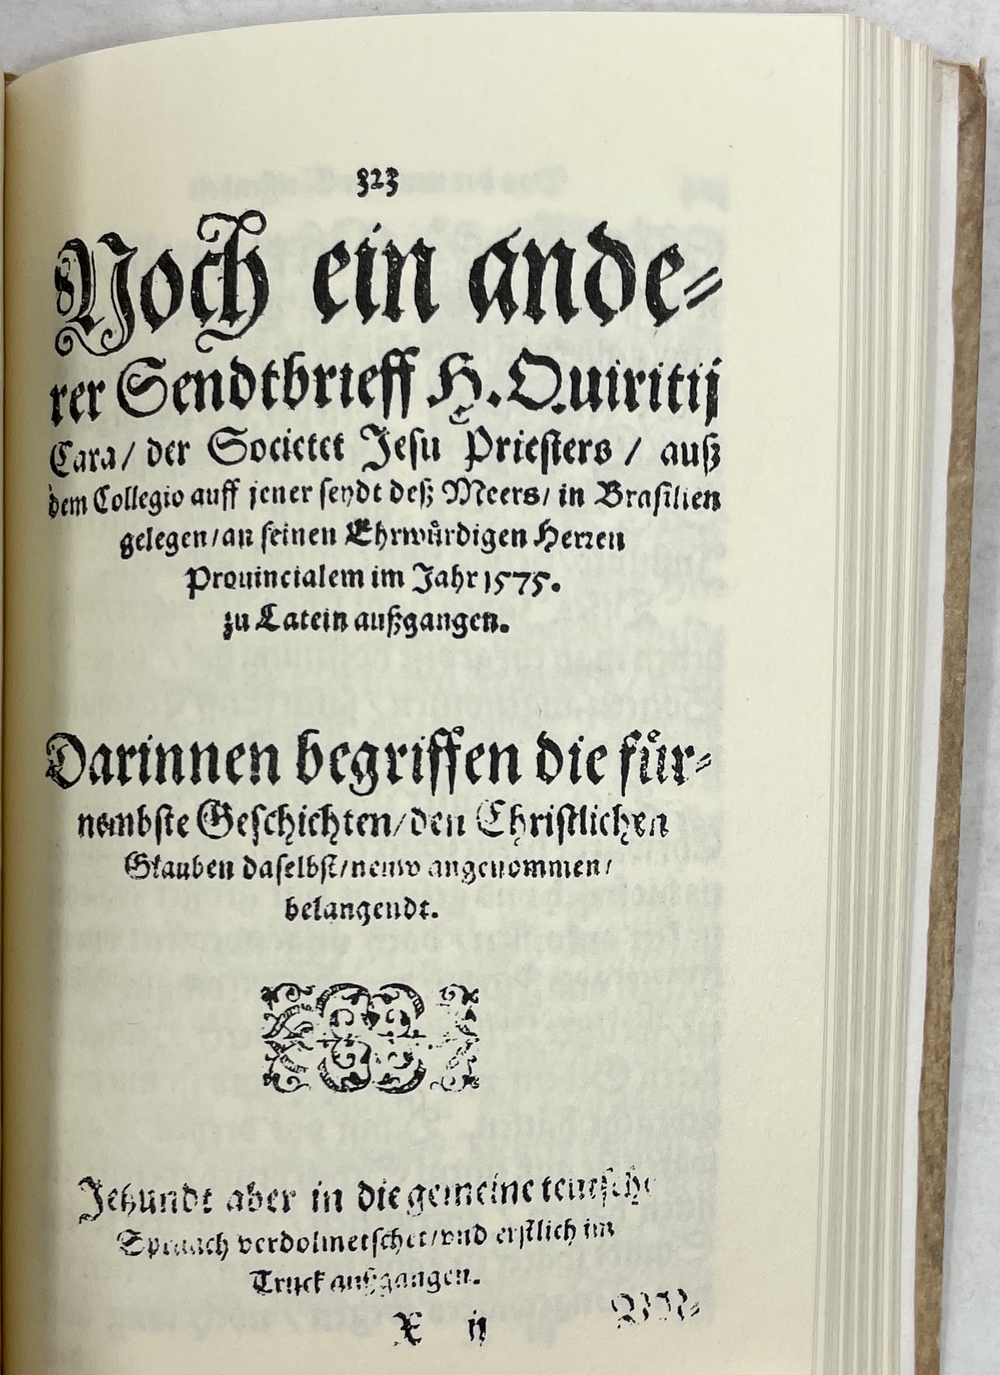 323
Noch ein ande-
rer Sendtbrieff H. Quiritij
Cara/ der Societet Jesu Priesters / auß
dem Collegio auff jener seydt deß Meers/ in Brasilien
gelegen/an seinen Ehrwürdigen Herren
Prouincialem im Jahr 1575.
zu Latein außgangen.
Darinnen begriffen die für-
nembste Geschichten/den Christlichen
Glauben daselbst/neuw angenommen/
belangendt.
Jetzundt aber in die gemeine teutsche
Spraach verdolmetschet/vnd erstlich im
Truck außgangen.
X ij